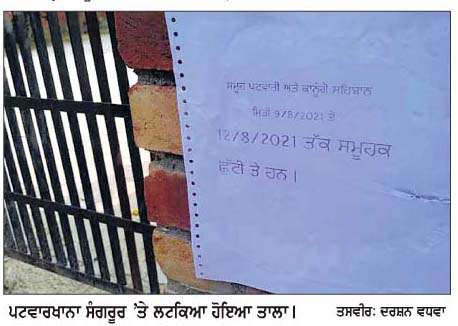 ਸਮੂਹ ਪਟਵਾਰੀ ਅਤੇ ਕਾਨੂੰਗੋ ਸਹਿਬਾਨ
ਮਿਤੀ 9/8/2021 ਤੋਂ
12/8/2021 ਤੱਕ ਸਮੂਹਕ
ਛੁੱਟੀ ਤੇ ਹਨ।
ਪਟਵਾਰਖਾਨਾ ਸੰਗਰੂਰ 'ਤੇ ਲਟਕਿਆ ਹੋਇਆ ਤਾਲਾ। ਤਸਵੀਰ: ਦਰਸ਼ਨ ਵਧਵਾ